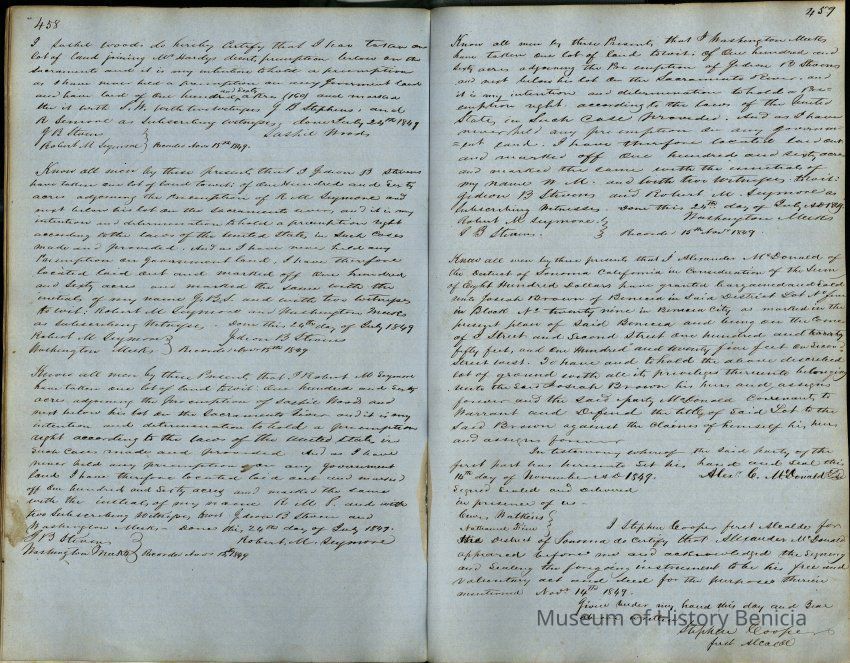 458
I Sashil Woods do hereby Certify that I have taken a
Lot of land joining McHardys decent preemption below on the
Sacramento and it is my intention to hold a preemption
as I have never held a preemption on any Government land
and have laid of One hundred and Sixty Acres (160) and marked
the it with S. W. with two witnesses, J B Stephens and
R Semore as Subscribing Witnesses, done July 24th 1849
J B Steven
Sashil Woods
Robert M Seymore Recorded Nov 15th 1849.
Know all men by these presents that I Jdson B Stevens
have taken one lot of land towit: of One Hundred and Sixty
acres adjoining the Preemption of R M Seymore and
next below his lot on the Sacramento river, and it is my
intention and determination to hold a preemption right
according to the laws of the United States, in Such Cases
made and provided. And as I have never held any
Preemption on Government land, I have therefore
located laid out and marked off One hundred
and Sixty acres and marked the same with the
initials of my name J.B.S. and with two Witnesses
to wit. Robert M Seymore and Washington Meeks
as Subscribing Witnesses. Done this 24th day of July 1849
Robert M. Seymore
Jdson B Stevens
Washington Meeks Recorded Nov 15th 1849.
Know all men by these Presents, that I Robert M Seymore
have taken one lot of land to wit One hundred and Sixty
acres adjoining the Preemption of Sashil Wood and
next below his lot on the Sacramento River and it is my
intention and determination to hold a preemption
right according to the laws of the United States in
Such Cases made and provided. And as I have
never held any preemption on any government
land I have therefore located laid out and marked
off One hundred and Sixty acres and marked the same
with the initials of my name R M S. and with
two Subscribing Witnesses, Jdson B Stevens and
Washington Meeks. Done this 24th day of July 1849.
J B Stevens
Robert M. Seymore
Washington Meeks Recorded Nov 15th 1849
459
Know all men by these Presents, that I Washington Meeks
have taken one lot of land towit: of One hundred and
Sixty acres adjoining the Preemption of Jdson B Stevens
and next below his lot on the Sacramento River, and
it is my intention and determination to hold a Pre-
emption right according to the laws of the United
States, in Such Case Provided. And as I have
never held any preemption on any govern-
ment land. I have therefore located laid out
and marked off One hundred and Sixty acres
and marked the same with the initials of
my name W. M. and with two Witnesses towit:
Jdson B Stevens and Robert M Seymore as
Subscribing Witnesses. Done this 24th day of July AD 1849
Robert M. Seymore
Washington Meeks
J B Stevens. Recorded 15th Nov 1849.
Know all men by these presents that I Alexander McDonald of
the District of Sonoma California in Consideration of the Sum
of Eight Hundred Dollars have granted bargained and Sold
unto Josiah Brown of Benicia in Said District Lot No five
in Block No twenty nine in Benicia City as marked in the
present plan of Said Benicia and being on the Corner
of I Street and Second Street one hundred and
fifty feet, and One Hundred and twenty five feet on Second
Street West. To have and to hold the above described
lot of ground with all its privileges thereunto belonging
unto the Said Josiah Brown his heirs and assigns
forever and the Said party McDonald Covenants to
Warrant and Defend the title of Said Lot to the
Said Brown against the Claims of himself his heirs
and assigns forever
In testimony whereof the Said party of the
first part has hereunto Set his hand and Seal this
14th day of November AD 1849. Alex. C. McDonald
Signed Sealed and Delivered
in presence of us
Watkins
Nathaniel
I Stephen Cooper first Alcalde for
the District of Sonoma do Certify that Alexander McDonald
appeared before me and acknowledged the Signing
and Sealing the foregoing instrument to be his free and
voluntary act and deed for the purposes therein
mentioned Nov 14th 1849.
Given Under my hand this day and Year
above written
Stephen Cooper
first Alcalde
Museum of History Benicia